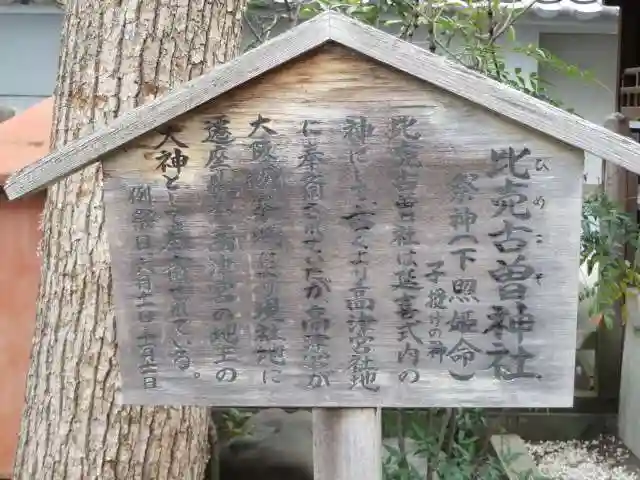 ひめこそ
比売古曽神社
祭神(下照姫命)
子授けの神
比売古曽社は延喜式内の
神にして、古くより高津宮社地
に奉斎されていたが、高津宮が
大阪城本城より現社地に
遷座以後高津宮の地主の
大神として奉斎されている。
例祭日 六月十一日 十月十二日